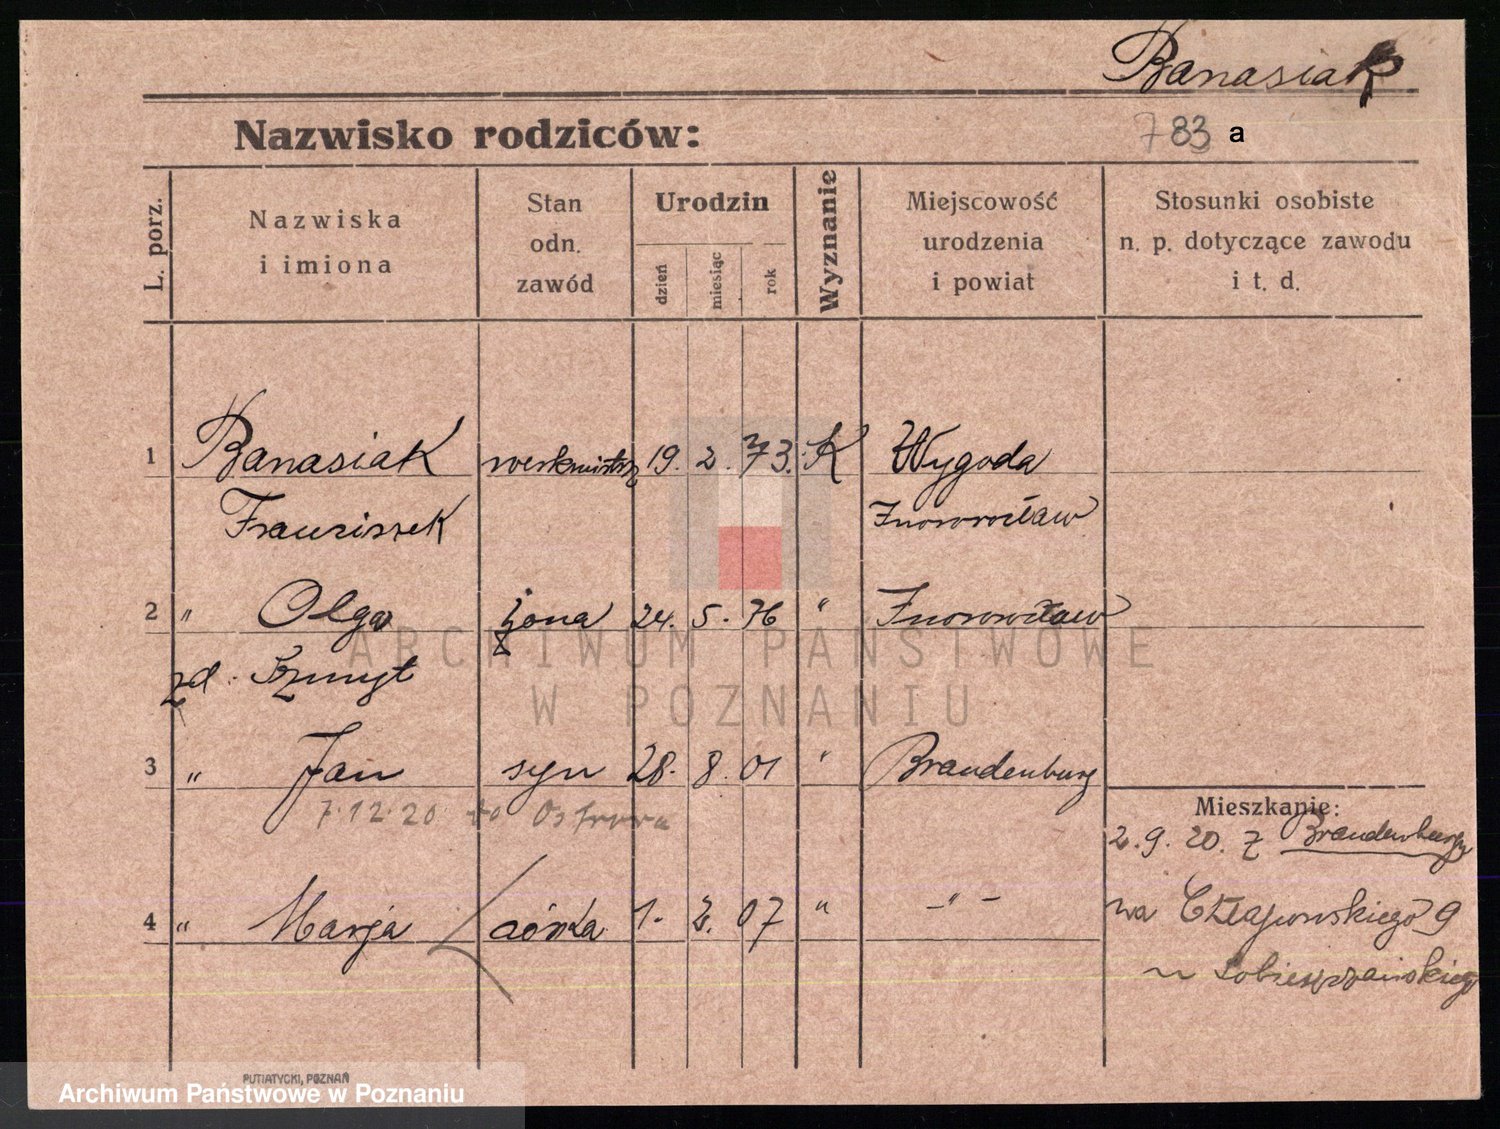 Banasiak
Nazwisko rodziców:
783 a
L. porz.
Nazwiska
i imiona
Stan
odn.
zawód
Urodzin
dzień
miesiąc
rok
Wyznanie
Miejscowość
urodzenia
i powiat
Stosunki osobiste
n. p. dotyczące zawodu
i t. d.
1 Banasiak werkmistrz 19. 2. 73. K Wygoda
Franciszek Inowrocław
2 " Olga żona 24. 5. 76 " Inowrocław
zd. Szmyt
ARCHIWUM PAŃSTWOWE
W POZNANIU
3 " Jan syn 28. 8. 01 " Brandenburg
7.12.20 do Ostrowa
Mieszkanie:
2.9.20. z Brandenburg
4 " Marja córka 1. 2. 07 " - " -
na Chłapowskiego 9
u Sobieszczańskiego
PUTIATYCKI, POZNAŃ
Archiwum Państwowe w Poznaniu